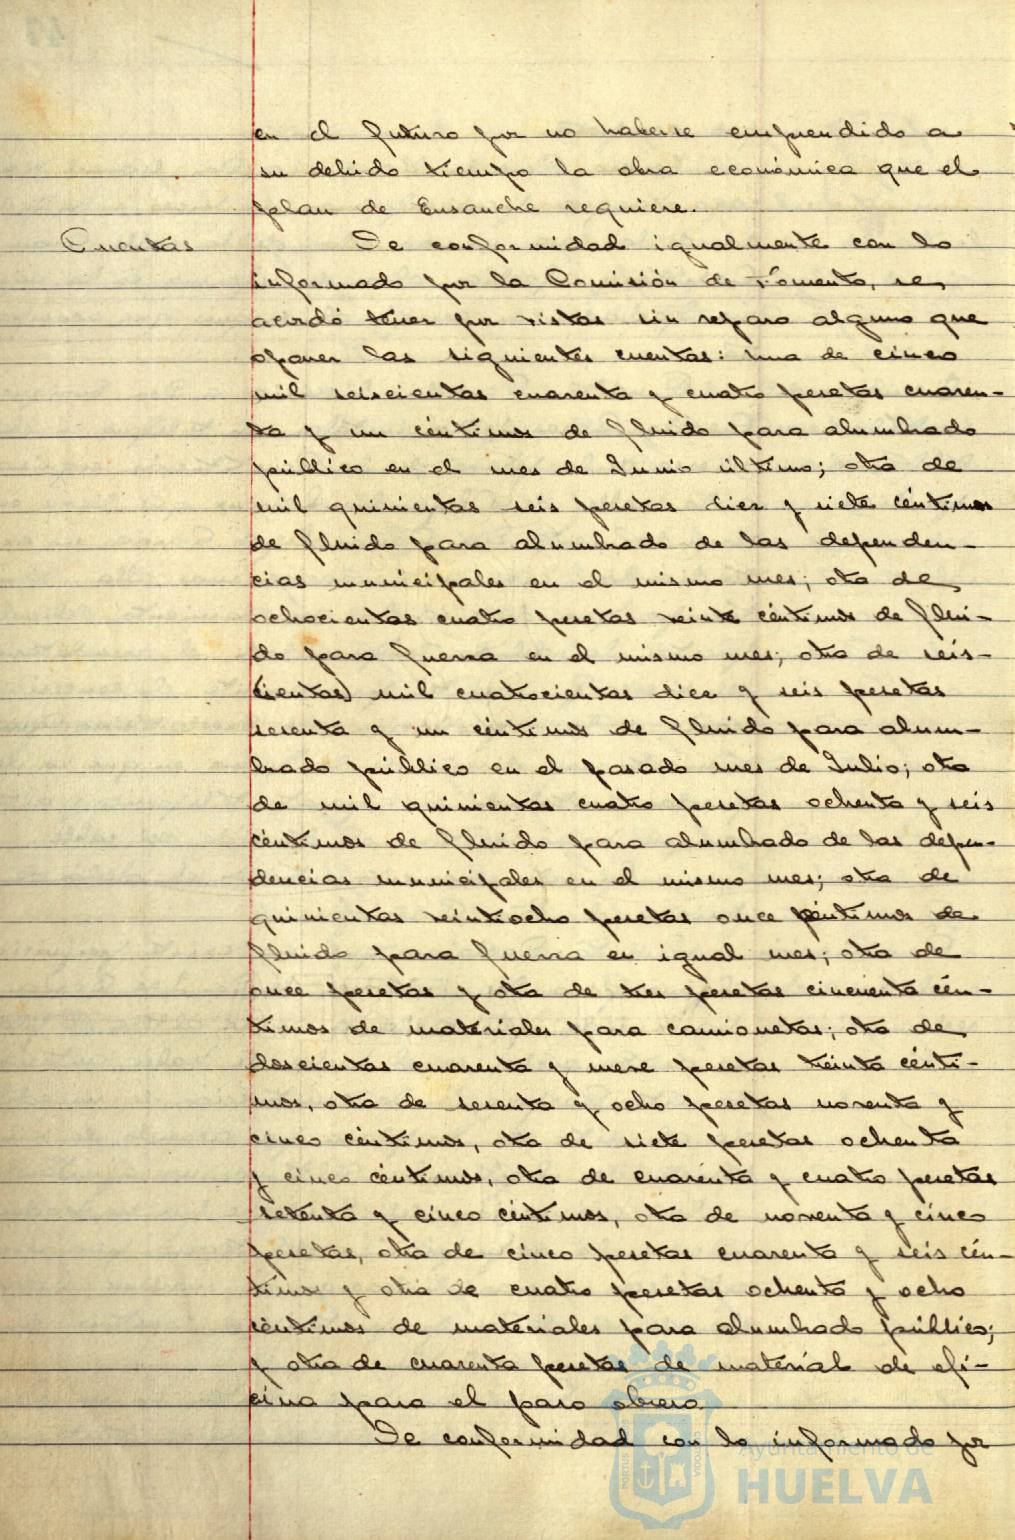 en el futuro por no haberse emprendido a
su debido tiempo la obra económica que el
plan de Ensanche requiere.
Cuentas
De conformidad igualmente con lo
informado por la Comisión de Fomento, se
acordó tener por vistas sin reparo alguno que
oponer las siguientes cuentas: una de cinco
mil seiscientas cuarenta y cuatro pesetas cuaren-
ta y un céntimos de fluido para alumbrado
público en el mes de Junio último; otra de
mil quinientas seis pesetas diez y siete céntimos
de fluido para alumbrado de las dependen-
cias municipales en el mismo mes; otra de
ochocientas cuatro pesetas veinte céntimos de flui-
do para fuerza en el mismo mes; otra de seis-
(cientas) mil cuatrocientas diez y seis pesetas
sesenta y un céntimos de fluido para alum-
brado público en el pasado mes de Julio; otra
de mil quinientas cuatro pesetas ochenta y seis
céntimos de fluido para alumbrado de las depen-
dencias municipales en el mismo mes; otra de
quinientas veintiocho pesetas once céntimos de
fluido para fuerza en igual mes; otra de
once pesetas y otra de tres pesetas cincuenta cén-
timos de materiales para camionetas; otra de
doscientas cuarenta y nueve pesetas treinta cénti-
mos, otra de sesenta y ocho pesetas noventa y
cinco céntimos, otra de siete pesetas ochenta
y cinco céntimos, otra de cuarenta y cuatro pesetas
setenta y cinco céntimos, otra de noventa y cinco
pesetas, otra de cinco pesetas cuarenta y seis cén-
timos y otra de cuatro pesetas ochenta y ocho
céntimos de materiales para alumbrado público;
y otra de cuarenta pesetas de material de ofi-
cina para el paro obrero.
De conformidad con lo informado por
Ayuntamiento de
HUELVA